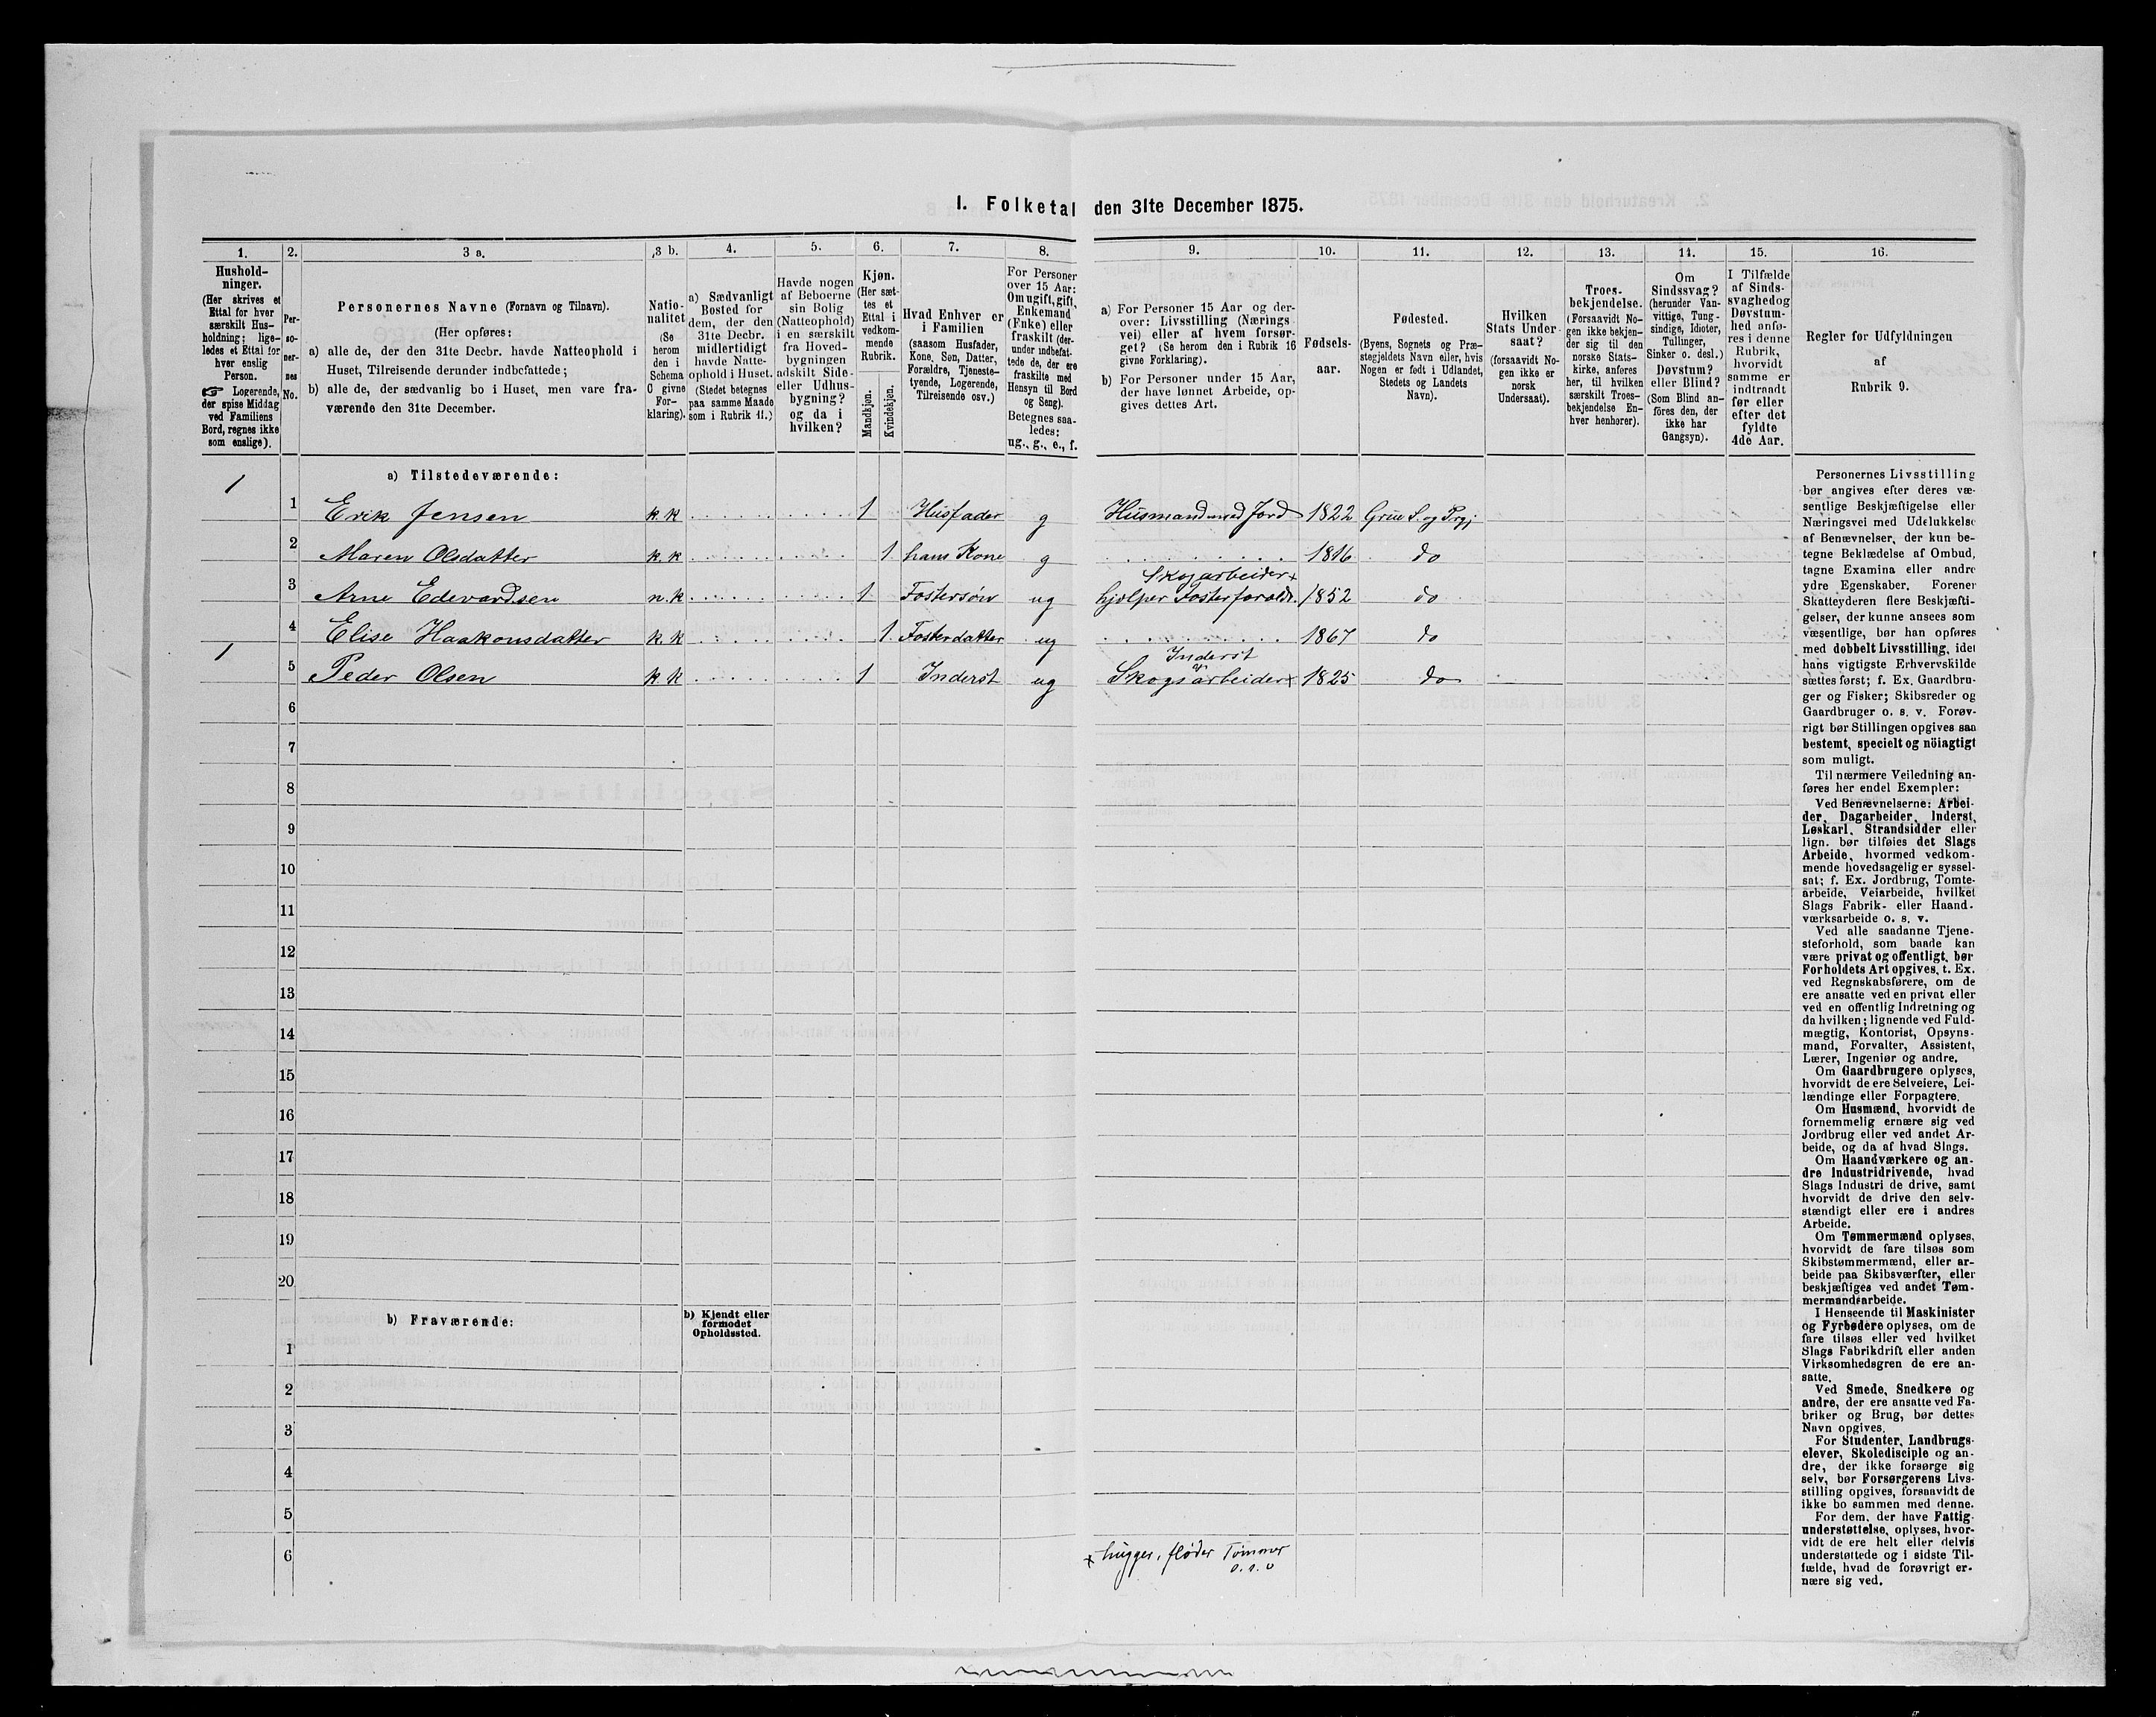 I. Folketal den 31te December 1875.
1. 2. 3 a. 3 b. 4. 5. 6. 7. 8. 9. 10. 11. 12. 13. 14. 15. 16.
Hushold-
ninger.
(Her skrives et
Ettal for hver
særskilt Hus-
holdning; lige-
ledes et Ettal for
hver enslig
Person.
☞ Logerende,
der spise Middag
ved Familiens
Bord, regnes ikke
som enslige).
Per-
so-
ner-
nes
No.
Personernes Navne (Fornavn og Tilnavn).
(Her opføres:
a) alle de, der den 31te Decbr. havde Natteophold i
Huset, Tilreisende derunder indbefattede;
b) alle de, der sædvanlig bo i Huset, men vare fra-
værende den 31te December.
Natio-
nalitet
(Se
herom
den i
Schema
O givne
For-
klaring).
a) Sædvanligt
Bosted for
dem, der den
31te Decbr.
midlertidigt
havde Natte-
ophold i Huset.
(Stedet betegnes
paa samme Maade
som i Rubrik 11.)
Havde nogen
af Beboerne
sin Bolig
(Natteophold)
i en særskilt
fra Hoved-
bygningen
adskilt Side-
eller Udhus-
bygning?
og da i
hvilken?
Kjøn.
(Her sæt-
tes et
Ettal i
vedkom-
mende
Rubrik.
Mandkjøn.
Kvindekjøn.
Hvad Enhver er
i Familien
(saasom Husfader,
Kone, Søn, Datter,
Forældre, Tjeneste-
tyende, Logerende,
Tilreisende osv.)
For Personer
over 15 Aar:
Om ugift, gift,
Enkemand
(Enke) eller
fraskilt (der-
under indbefat-
tede de, der ere
fraskilte med
Hensyn til Bord
og Seng).
Betegnes saa-
ledes:
ug., g., e., f.
a) For Personer 15 Aar og der-
over: Livsstilling (Nærings
vei) eller af hvem forsør-
get? (Se herom den i Rubrik 16
givne Forklaring).
b) For Personer under 15 Aar,
der have lønnet Arbeide, op-
gives dettes Art.
Fødsels-
aar.
Fødested.
(Byens, Sognets og Præ-
stegjeldets Navn eller, hvis
Nogen er født i Udlandet,
Stedets og Landets
Navn).
Hvilken
Stats Under-
saat?
(forsaavidt No-
gen ikke er
norsk
Undersaat).
Troes-
bekjendelse.
(Forsaavidt No-
gen ikke bekjen-
der sig til den
norske Stats-
kirke, anføres
her, til hvilken
særskilt Troes-
bekjendelse En-
hver henhører).
Om
Sindssvag?
(herunder Van-
vittige, Tung-
sindige, Idioter,
Tullinger,
Sinker o. desl.)
Døvstum?
eller Blind?
(Som Blind an-
føres den, der
ikke har
Gangsyn).
I Tilfælde
af Sinds-
svaghed og
Døvstum-
hed anfø-
res i denne
Rubrik,
hvorvidt
samme er
indtraadt
før eller
efter det
fyldte
4de Aar.
Regler for Udfyldningen
af
Rubrik 9.
a) Tilstedeværende:
1
1 Erik Jensen k.k 1 Husfader g Husmand med Jord 1822 Grue S. og Prgj
2 Maren Olsdatter k.k 1 hans Kone g 1816 do
Skogarbeider x
3 Arne Edevardsen n.k 1 Fostersøn ug hjelper Fosterforældr. 1852 do
4 Elise Haakonsdatter k.k 1 Fosterdatter ug 1867 do
1
Inderst
5 Peder Olsen k k 1 Inderst ug Skogsarbeider x 1825 do
6
7
8
9
10
11
12
13
14
15
16
17
18
19
20
b) Fraværende:
b) Kjendt eller
formodet
Opholdssted.
1
2
3
4
5
6
x hugger, fløder Tømmer
o.s.v
Personernes Livsstilling
bør angives efter deres væ-
sentlige Beskjæftigelse eller
Næringsvei med Udelukkelse
af Benævnelser, der kun be-
tegne Beklædelse af Ombud,
tagne Examina eller andre
ydre Egenskaber. Forener
Skatteyderen flere Beskjæfti-
gelser, der kunne ansees som
væsentlige, bør han opføres
med dobbelt Livsstilling, idet
hans vigtigste Erhvervskilde
sættes først; f. Ex. Gaardbru-
ger og Fisker; Skibsreder og
Gaardbruger o. s. v. Forøv-
rigt bør Stillingen opgives saa
bestemt, specielt og nöiagtigt
som muligt.
Til nærmere Veiledning an-
føres her endel Exempler:
Ved Benævnelserne: Arbei-
der, Dagarbeider, Inderst,
Løskarl, Strandsidder eller
lign. bør tilføies det Slags
Arbeide, hvormed vedkom-
mende hovedsagelig er syssel-
sat; f. Ex. Jordbrug, Tomte-
arbeide, Veiarbeide, hvilket
Slags Fabrik- eller Haand-
værksarbeide o. s. v.
Ved alle saadanne Tjene-
steforhold, som baade kan
være privat og offentligt, bør
Forholdets Art opgives, t. Ex.
ved Regnskabsførere, om de
ere ansatte ved en privat eller
ved en offentlig Indretning og
da hvilken; lignende ved Fuld-
mægtig, Kontorist, Opsyns-
mand, Forvalter, Assistent,
Lærer, Ingeniør og andre.
Om Gaardbrugere oplyses,
hvorvidt de ere Selveiere, Lei-
lændinge eller Forpagtere.
Om Husmænd, hvorvidt de
fornemmelig ernære sig ved
Jordbrug eller ved andet Ar-
beide, og da af hvad Slags.
Om Haandværkere og an-
dre Industridrivende, hvad
Slags Industri de drive, samt
hvorvidt de drive den selv-
stændigt eller ere i andres
Arbeide.
Om Tømmermænd oplyses,
hvorvidt de fare tilsøs som
Skibstømmermænd, eller ar-
beide paa Skibsværfter, eller
beskjæftiges ved andet Tøm-
mermandsarbeide.
I Henseende til Maskinister
og Fyrbødere oplyses, om de
fare tilsøs eller ved hvilket
Slags Fabrikdrift eller anden
Virksomhedsgren de ere an-
satte.
Ved Smede, Snedkere og
andre, der ere ansatte ved Fa-
briker og Brug, bør dettes
Navn opgives.
For Studenter, Landbrugs-
elever, Skoledisciple og an-
dre, der ikke forsørge sig
selv, bør Forsørgerens Livs-
stilling opgives, forsaavidt de
ikke bo sammen med denne.
For dem, der have Fattig-
understøttelse, oplyses, hvor-
vidt de ere helt eller delvis
understøttede og i sidste Til-
fælde, hvad de forøvrigt er-
nære sig ved.